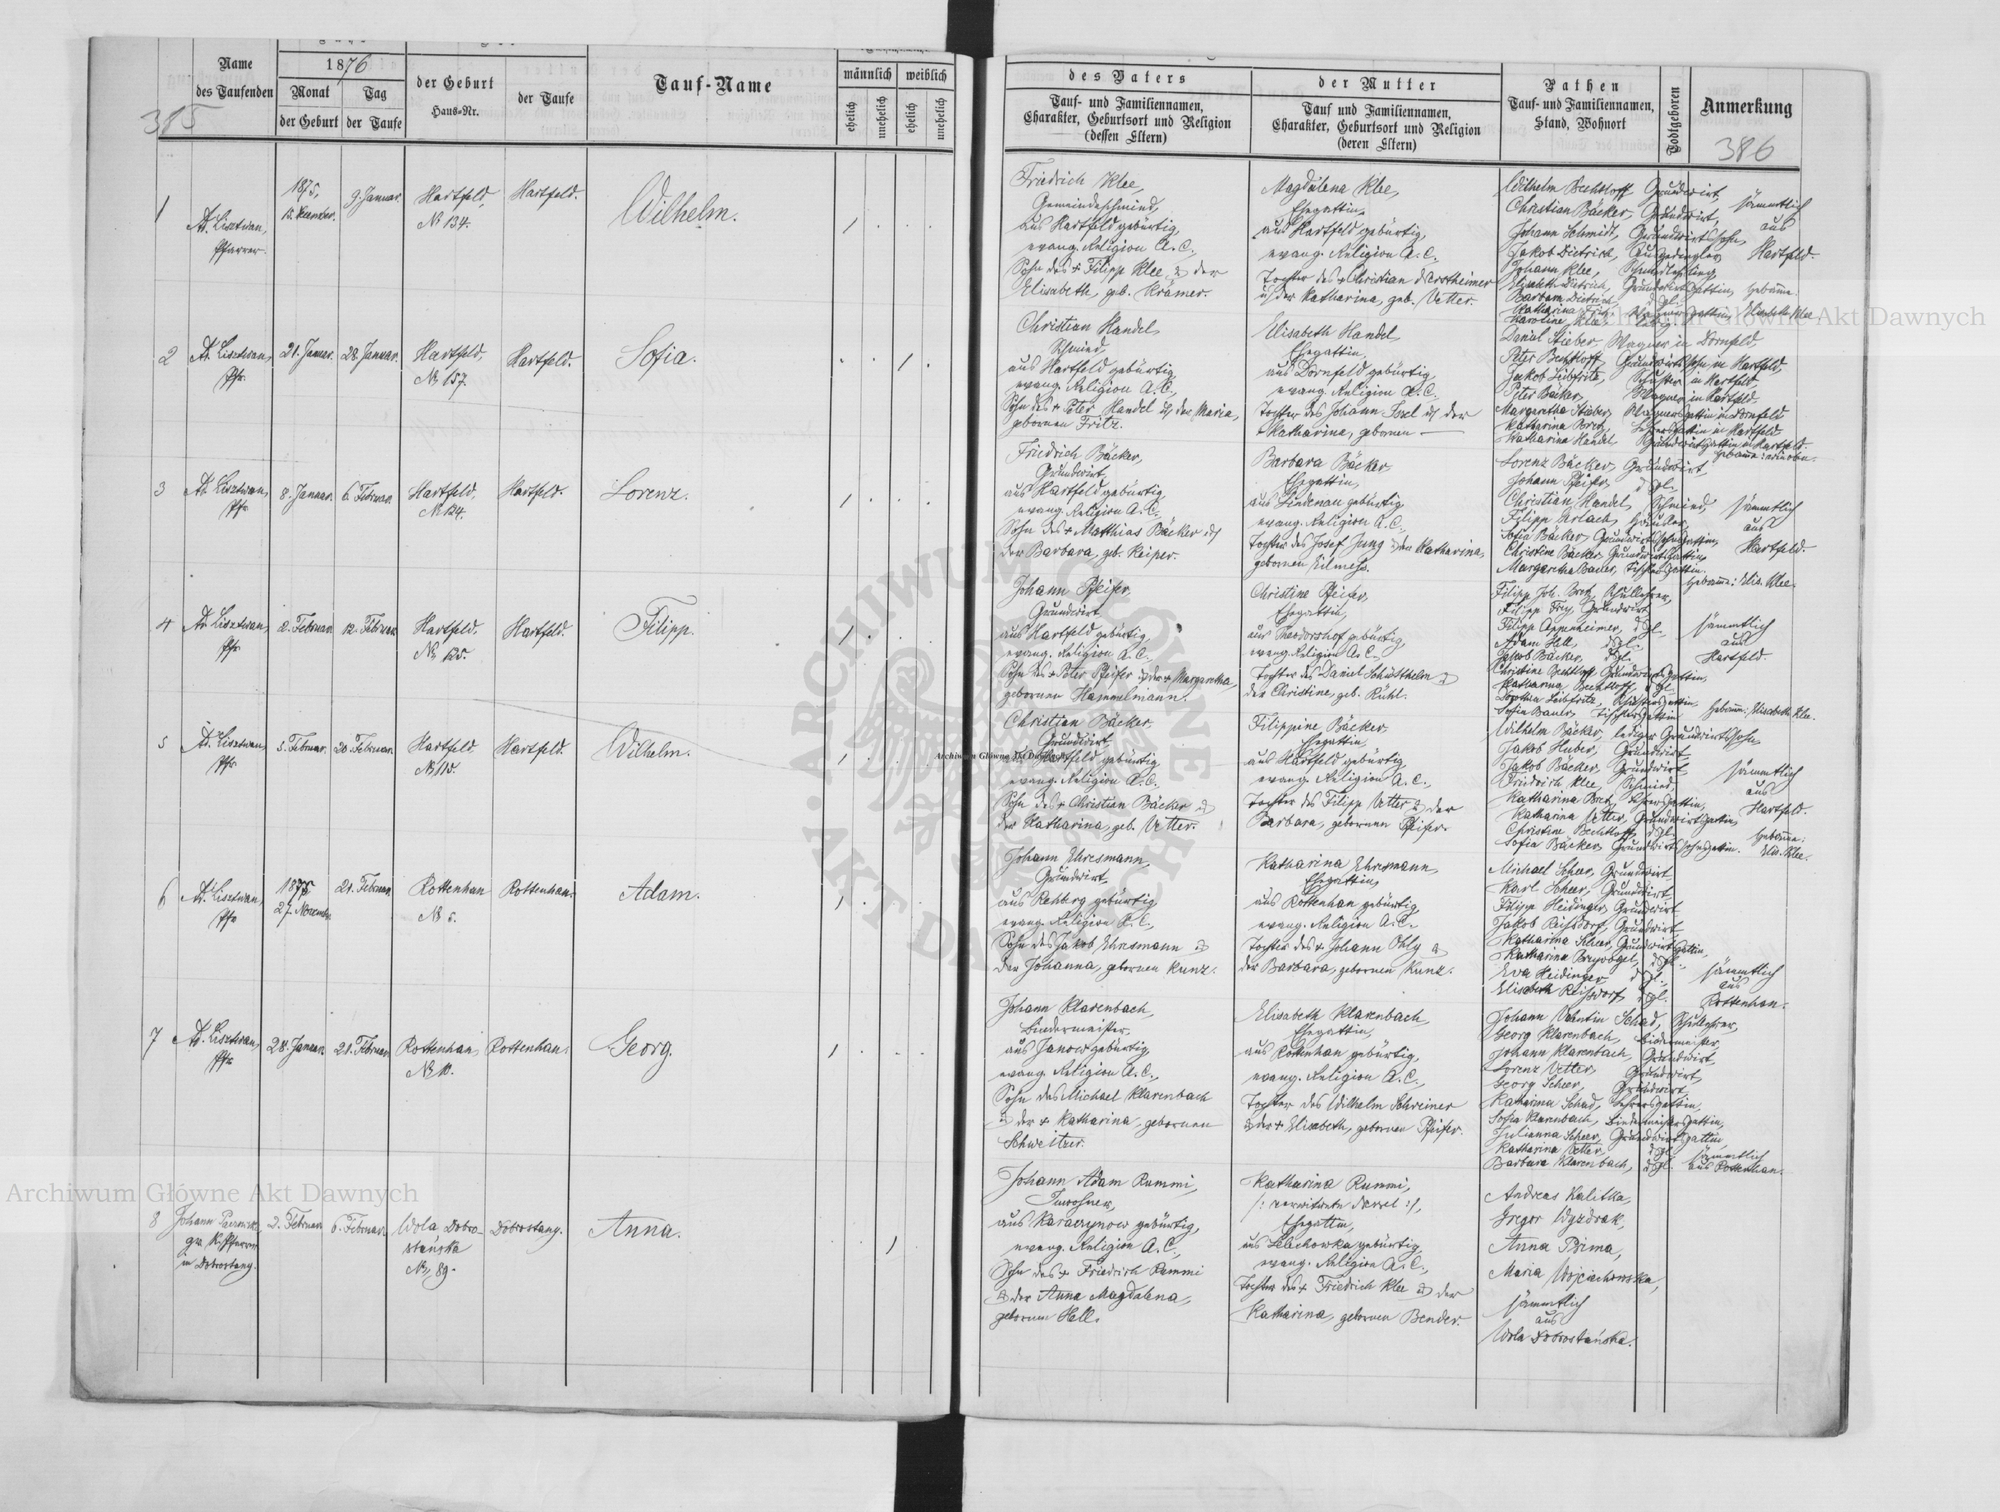 385
Name
des Taufenden
1876
Monat
Tag
der Geburt
der Taufe
der Geburt
Haus-Nr.
der Taufe
Tauf-Name
männlich
weiblich
ehelich
unehelich
ehelich
unehelich
des Vaters
Tauf- und Familiennamen,
Charakter, Geburtsort und Religion
(dessen Eltern)
der Mutter
Tauf und Familiennamen,
Charakter, Geburtsort und Religion
(deren Eltern)
Pathen
Tauf- und Familiennamen,
Stand, Wohnort
Todtgeboren
Anmerkung
386
1
Pfarrer.
1875,
9. Januar.
Hartfeld,
№ 134.
Hartfeld.
Wilhelm.
Friedrich Klee,
Gemeindeschmied,
aus Hartfeld gebürtig,
evang. Religion A. C.,
Sohn des + Filipp Klee & der
Elisabeth, geb. Krämer.
Magdalena Klee,
Ehegattin,
aus Hartfeld gebürtig,
evang. Religion A. C.,
Tochter des + Christian
u. der Katharina, geb. Vetter.
Wilhelm Bechtloff, Grundwirt,
Christian Bäcker, Grundwirt,
Johann Schmidt, Grundwirtssohn,
Jakob Dietrich, Ausgedingler,
Johann Klee,
Elisabeth Dietrich, Grundwirtsgattin,
Barbara Dietrich,
Karoline Klee
sämmtlich
aus
Hartfeld.
2
Pfr.
21. Januar.
28. Januar.
Hartfeld,
№ 157.
Hartfeld.
Sofia.
Christian Handel,
Schmied,
aus Hartfeld gebürtig,
evang. Religion A. C.,
Sohn des + Peter Handel u. der Maria,
gebornen Fritz.
Elisabeth Handel,
Ehegattin,
aus Dornfeld gebürtig,
evang. Religion A. C.,
Tochter des Johann
+ Katharina, gebornen —
Daniel Stieber, Wagner in Dornfeld,
Peter Bechtloff, Grundwirtssohn in Hartfeld,
Jakob Leibfritz, Schuster in Hartfeld,
Peter Bäcker, Wagner in Hartfeld,
Margaretha Stieber, Wagnersgattin in Dornfeld
Katharina Bretz, Lehrersgattin in Hartfeld,
Katharina Handel, Grundwirtsgattin in Hartfeld.
3
Pfr.
8. Januar.
6. Februar.
Hartfeld,
№ 124.
Hartfeld.
Lorenz.
Friedrich Bäcker,
Grundwirt,
aus Hartfeld gebürtig,
evang. Religion A. C.,
Sohn des + Matthias Bäcker u.
der Barbara, geb. Keiper.
Barbara Bäcker,
Ehegattin,
aus Lindenau gebürtig,
evang. Religion A. C.,
Tochter des Josef Jung & der Katharina,
Lorenz Bäcker, Grundwirt,
Johann Pfeifer, dtgl.
Christian Handel, Schmied
Sofia Bäcker,
Christine Bäcker, Grundwirtsgattin,
Margaretha Bauer, Tischlersgattin.
sämmtlich
aus
Hartfeld.
Hebamme: Elis. Klee.
4
Pfr.
2. Februar.
12. Februar.
Hartfeld,
№ 125.
Hartfeld.
Filipp.
Johann Pfeifer,
Grundwirt,
aus Hartfeld gebürtig,
evang. Religion A. C.,
Sohn des + Peter Pfeifer & der + Margaretha,
gebornen Hammelmann.
Christine Pfeifer,
Ehegattin,
aus Theodorshof gebürtig,
evang. Religion A. C.,
Tochter des Daniel
der Christine, geb. Rühl.
Filipp Joh. Bretz, Schullehrer,
Filipp Frey, Grundwirt
Filipp Oppenheimer, dtgl.
Adam Hell, dtgl.
Jakob Bäcker, dtgl.
Christine Bechtloff, Grundwirtsgattin,
Katharina Bechtloff, dtgl.
Sofia Bauer, Tischlersgattin
sämmtlich
aus
Hartfeld.
Hebamme: Elisabeth Klee.
5
Pfr.
5. Februar.
20. Februar.
Hartfeld
№ 115.
Hartfeld.
Wilhelm.
Christian Bäcker,
Grundwirt,
aus Hartfeld gebürtig,
evang. Religion A. C.,
Sohn des + Christian Bäcker &
der Katharina, geb. Vetter.
Filippine Bäcker,
Ehegattin,
aus Hartfeld gebürtig,
evang. Religion A. C.,
Tochter des Filipp Vetter & der
Barbara, gebornen Pfeifer.
Wilhelm Bäcker, lediger Grundwirtssohn,
Jakob Huber, Grundwirt
Jakob Bäcker, Grundwirt,
Friedrich Klee, Schmied,
Katharina Bretz, Lehrersgattin,
Katharina Vetter, Grundwirtsgattin,
Christine Bechtloff, dtgl.
Sofia Bäcker, Grundwirtssohnsgattin.
sämmtlich
aus
Hartfeld.
Hebamme:
Elis. Klee.
6
Pfr.
1875
27. November
21. Februar.
Rottenhan
№ 5.
Rottenhan.
Adam.
Johann Ehresmann,
Grundwirt,
aus Rehberg gebürtig,
evang. Religion A. C.,
Sohn des Jakob Ehresmann &
der Johanna, gebornen Kunz.
Katharina Ehresmann,
Ehegattin,
aus Rottenhan gebürtig,
evang. Religion A. C.,
Tochter des + Johann Ohly &
der Barbara, gebornen Kunz.
Michael Scheer, Grundwirt,
Karl Scheer, Grundwirt
Filipp Heidinger, Grundwirt
Jakob Reissdorf, Grundwirt
Katharina Scheer, Grundwirtsgattin,
Eva Heidinger dtgl.
Elisabeth Reissdorf dtgl.
sämmtlich
aus
Rottenhan.
7
Pfr.
28. Januar.
21. Februar.
Rottenhan,
№ 10.
Rottenhan.
Georg.
Johann Klarenbach,
Bindermeister,
aus Janow gebürtig,
evang. Religion A. C.,
Sohn des Michael Klarenbach
& der + Katharina, gebornen
Schweitzer.
Elisabeth Klarenbach,
Ehegattin,
aus Rottenhan gebürtig,
evang. Religion A. C.,
Tochter des Wilhelm Schreiner
& der + Elisabeth, gebornen Pfeifer.
Johann Valentin Schad, Schullehrer,
Georg Klarenbach, Bindermeister,
Johann Klarenbach, Grundwirt,
Lorenz Vetter, Grundwirt,
Georg Scheer, Grundwirt,
Katharina Schad, Lehrersgattin,
Sofia Klarenbach, Bindermeistersgattin,
Julianna Scheer, Grundwirtsgattin,
Katharina Vetter, dtgl.
Barbara Klarenbach, dtgl.
sämmtlich
aus Rottenhan.
8
Johann
in Dobrostany.
2. Februar
6. Februar.
Wola Dobro-
stańska
№ 89.
Dobrostany.
Anna.
Johann Adam Rummi,
Inwohner,
aus Karaczynow gebürtig,
evang. Religion A. C.,
Sohn des + Friedrich Rummi
& der Anna Magdalena,
gebornen Hell.
Katharina Rummi,
Ehegattin,
evang. Religion A. C.,
Tochter des + Friedrich Klee & der
Katharina, gebornen Bender.
Andreas Kalitka,
Gregor Wyzdrak,
Anna Bzima,
Maria Wojciechowska,
sämmtlich
aus
Wola Dobrostańska.
Archiwum Główne Akt Dawnych
Archiwum Główne Akt Dawnych
Archiwum Główne Akt Dawnych
ARCHIWUM GŁÓWNE AKT DAWNYCH